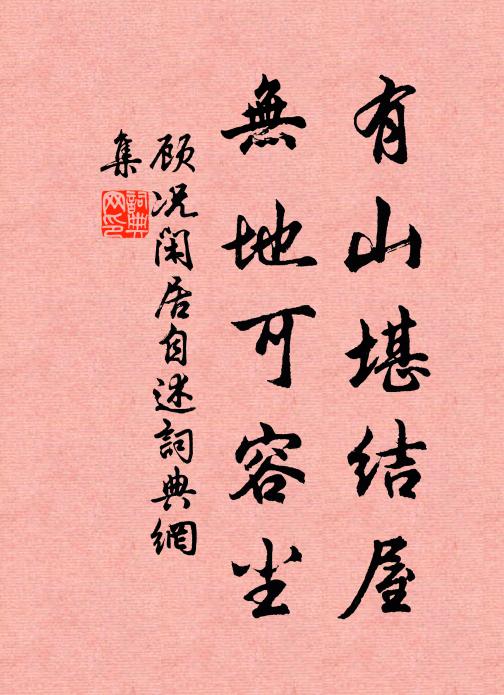 有山堪结屋
無地可容尘
顾况闲居自述詞典網
集
詞典网印